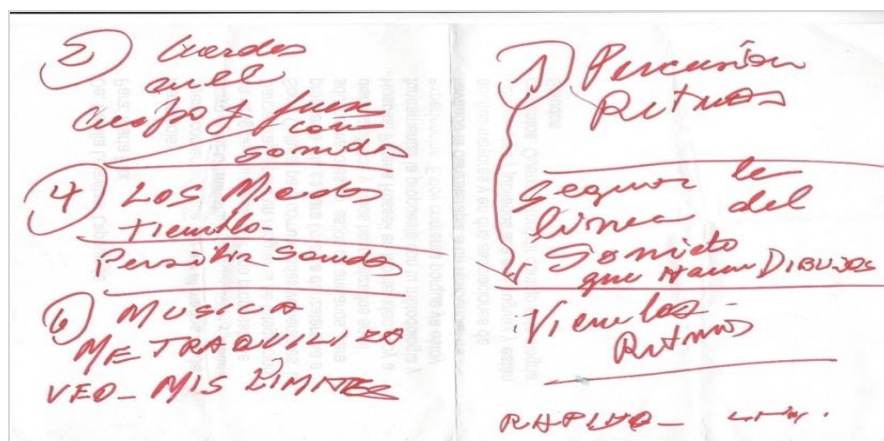 2 Cuerdas
en el
Cuerpo y fuera
con
sonidos
4 Los Miedos
tiemblo -
Persibir Sonidos
6 MUSICA
ME TRAQUILIZA
VEO - MIS LIMITES
1 Percusión
RITMOS
Seguir la
linea del
Sonido
que Hacen DIBUJOS
Ritmos
RAPIDO -